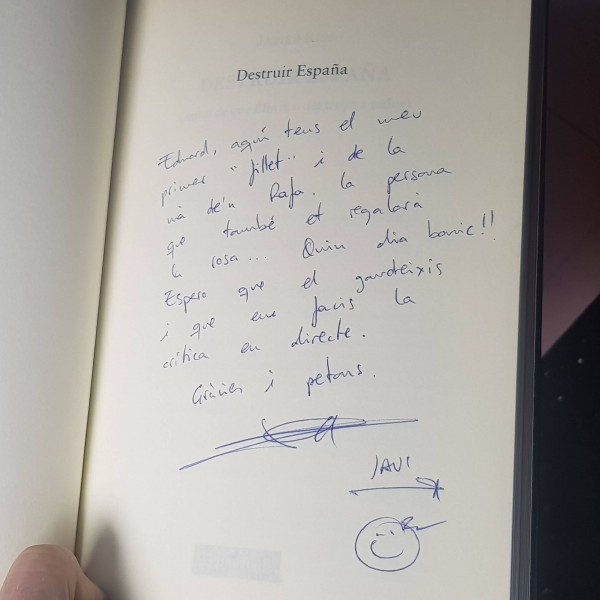 Destruir España
Eduard, aquí tens el meu
primer "fillet" i de la
mà de'n Rafa. la persona
que també et regalarà
la rosa... Quin dia bonic!!
Espero que el gaudeixis
i que ens facis la
crítica en directe.
Gràcies i petons.
JAVI